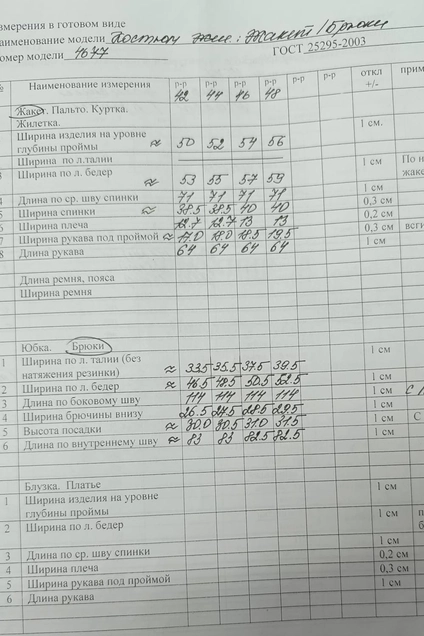 змерения в готовом виде
аименование модели Костюм жен: Жакет/Брюки
омер модели 4677 ГОСТ 25295-2003
№ Наименование измерения р-р 42 р-р 44 р-р 46 р-р 48 р-р р-р р-р откл +/- прим
Жакет. Пальто. Куртка.
Жилетка.
Ширина изделия на уровне глубины проймы ≈ 50 52 54 56 1 см.
Ширина по л.талии
3 Ширина по л. бедер ≈ 53 55 57 59 1 см По н жаке
4 Длина по ср. шву спинки 71 71 71 71 1 см
5 Ширина спинки ≈ 38.5 38.5 40 40 0,3 см
6 Ширина плеча 12.7 12.7 13 13 0,2 см
7 Ширина рукава под проймой ≈ 17.0 18.0 18.5 19.5 0,3 см
8 Длина рукава 64 64 64 64 1 см
Длина ремня, пояса
Ширина ремня
Юбка. Брюки
1 Ширина по л. талии (без натяжения резинки) ≈ 33.5 35.5 37.5 39.5 1 см
2 Ширина по л. бедер ≈ 46.5 48.5 50.5 52.5 1 см
3 Длина по боковому шву 114 114 114 114 1 см
4 Ширина брючины внизу 26.5 27.5 28.5 29.5 1 см
5 Высота посадки ≈ 30.0 30.5 31.0 31.5 1 см С
6 Длина по внутреннему шву ≈ 83 83 82.5 82.5 1 см
Блузка. Платье
1 Ширина изделия на уровне глубины проймы 1 см
2 Ширина по л. бедер 1 см
3 Длина по ср. шву спинки 1 см
4 Ширина плеча 0,2 см
5 Ширина рукава под проймой 0,3 см
6 Длина рукава 1 см